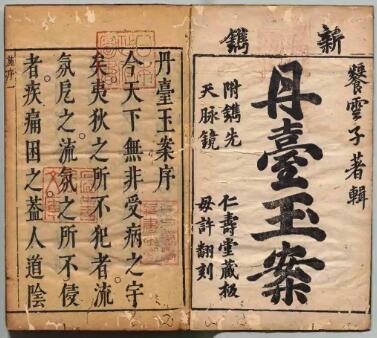 新鐫
饗雲子著輯
丹臺玉案
附鐫先
天脉鏡
仁壽堂藏板
毋許翻刻
丹臺玉案序
今天下無非受病之宇
矣夷狄之所不犯者流
氛戹之流氛之所不侵
者疾痛困之葢人道陰